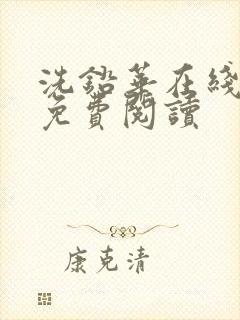 洗鉛華在綫
免費閱讀
康克清